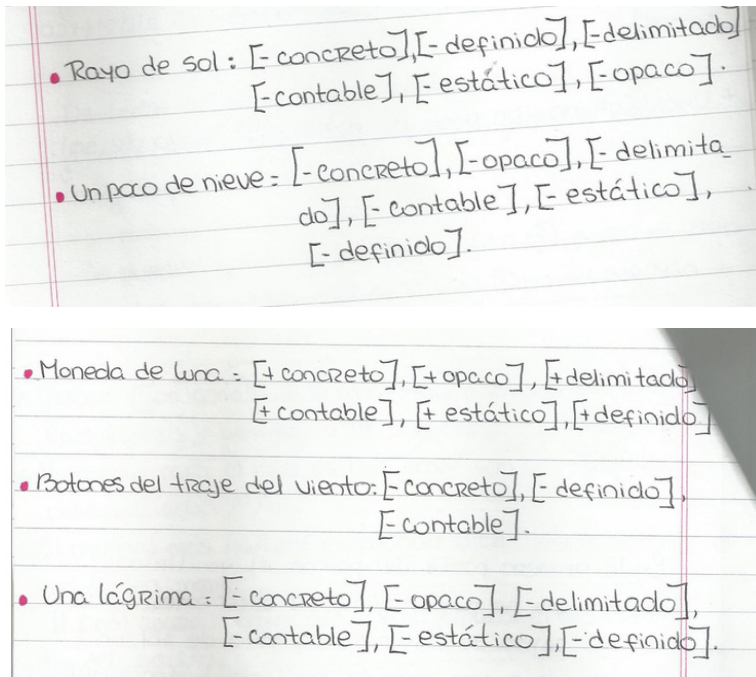 • Rayo de sol: [-concreto],[-definido],[-delimitado]
[-contable], [-estático], [-opaco].
• Un poco de nieve: [-concreto], [-opaco], [-delimita_
do], [-contable], [-estático],
[-definido].
• Moneda de luna: [+concreto], [+opaco], [+delimitado]
[+contable], [+ estático], [+definido]
• Botones del traje del viento: [-concreto], [-definido],
[-contable].
• Una lágrima: [-concreto], [-opaco], [-delimitado],
[-contable], [-estático], [-definido].